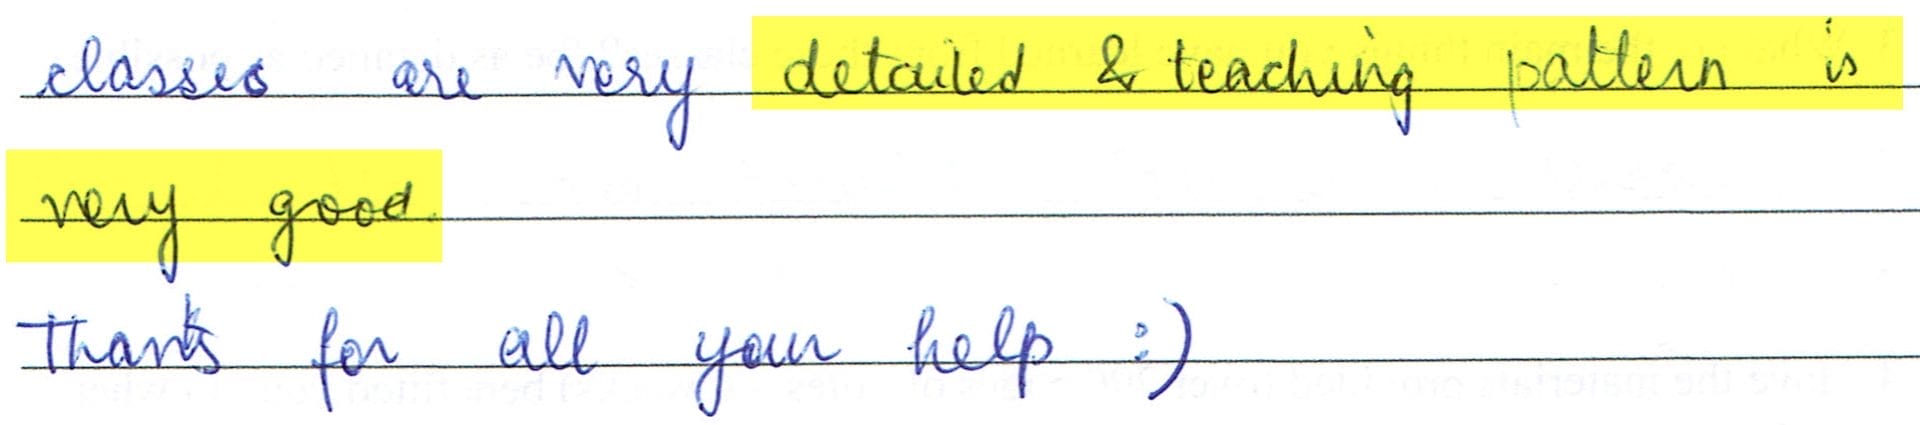 classes are very detailed & teaching pattern is
very good.
Thanks for all your help :)